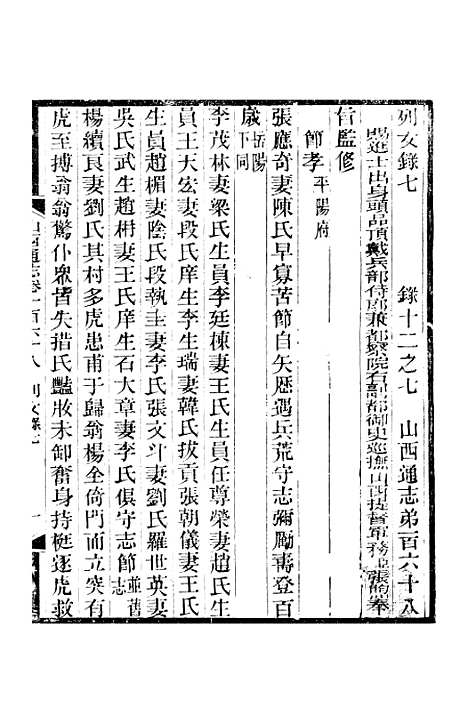 列女錄七　錄十二之七　山西通志弟百六十八
賜進士出身頭品頂戴兵部侍郎兼都察院右副都御史巡撫山西提督軍務 張煦奉
旨監修
節孝平陽府
張應奇妻陳氏早寡苦節自矢歷遇兵荒守志彌勵壽登百
歲岳陽下同
李茂林妻梁氏生員李廷棟妻王氏生員任尊榮妻趙氏生
員王天宏妻段氏庠生瑞妻韓氏拔貢張朝儀妻王氏
生員趙楣妻陰氏段執圭妻李氏張文斗妻劉氏羅世英妻
吳氏武生趙枏妻王氏庠生石大章妻李氏俱守志節並舊志
楊續良妻劉氏其村多虎患甫于歸翁楊全倚門而立突有
虎至搏翁翁驚仆衆皆失措氏豔妝未卸奮身持梃逐虎救
山西通志卷一百六十八 列女錄七 一